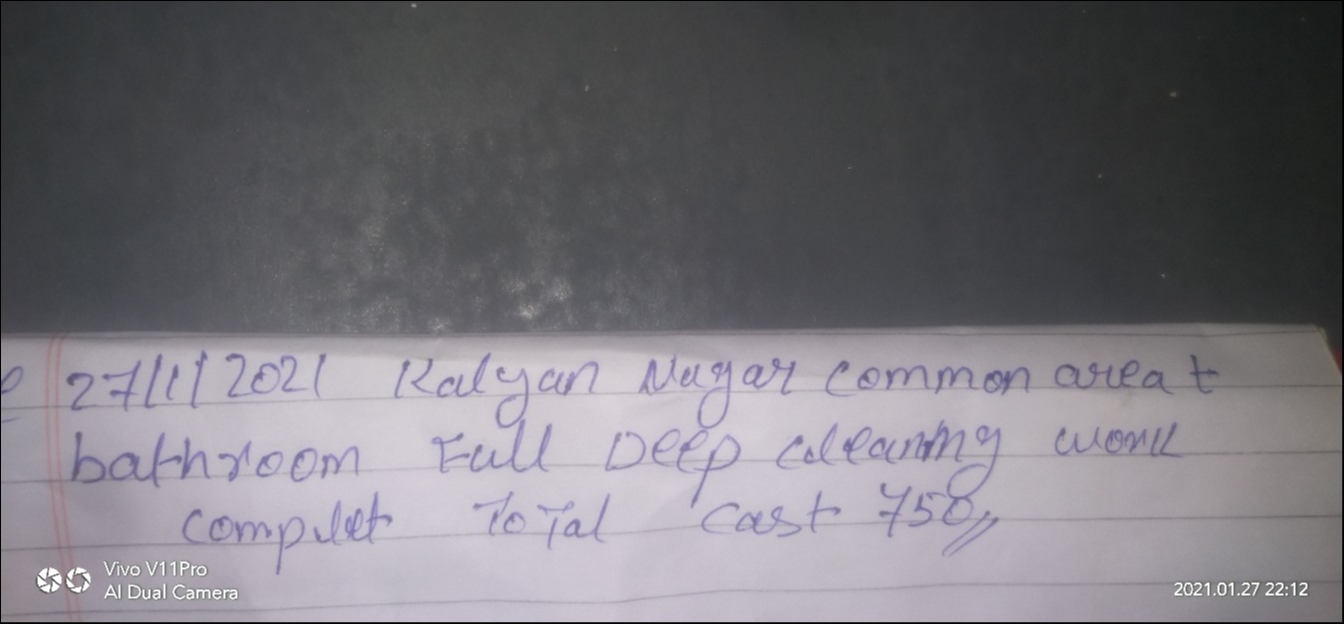 27/1/2021 Kalyan Nagar common area t
bathroom Full Deep cleaning work
complet Total cast 750,,
Vivo V11Pro
AI Dual Camera
2021.01.27 22:12